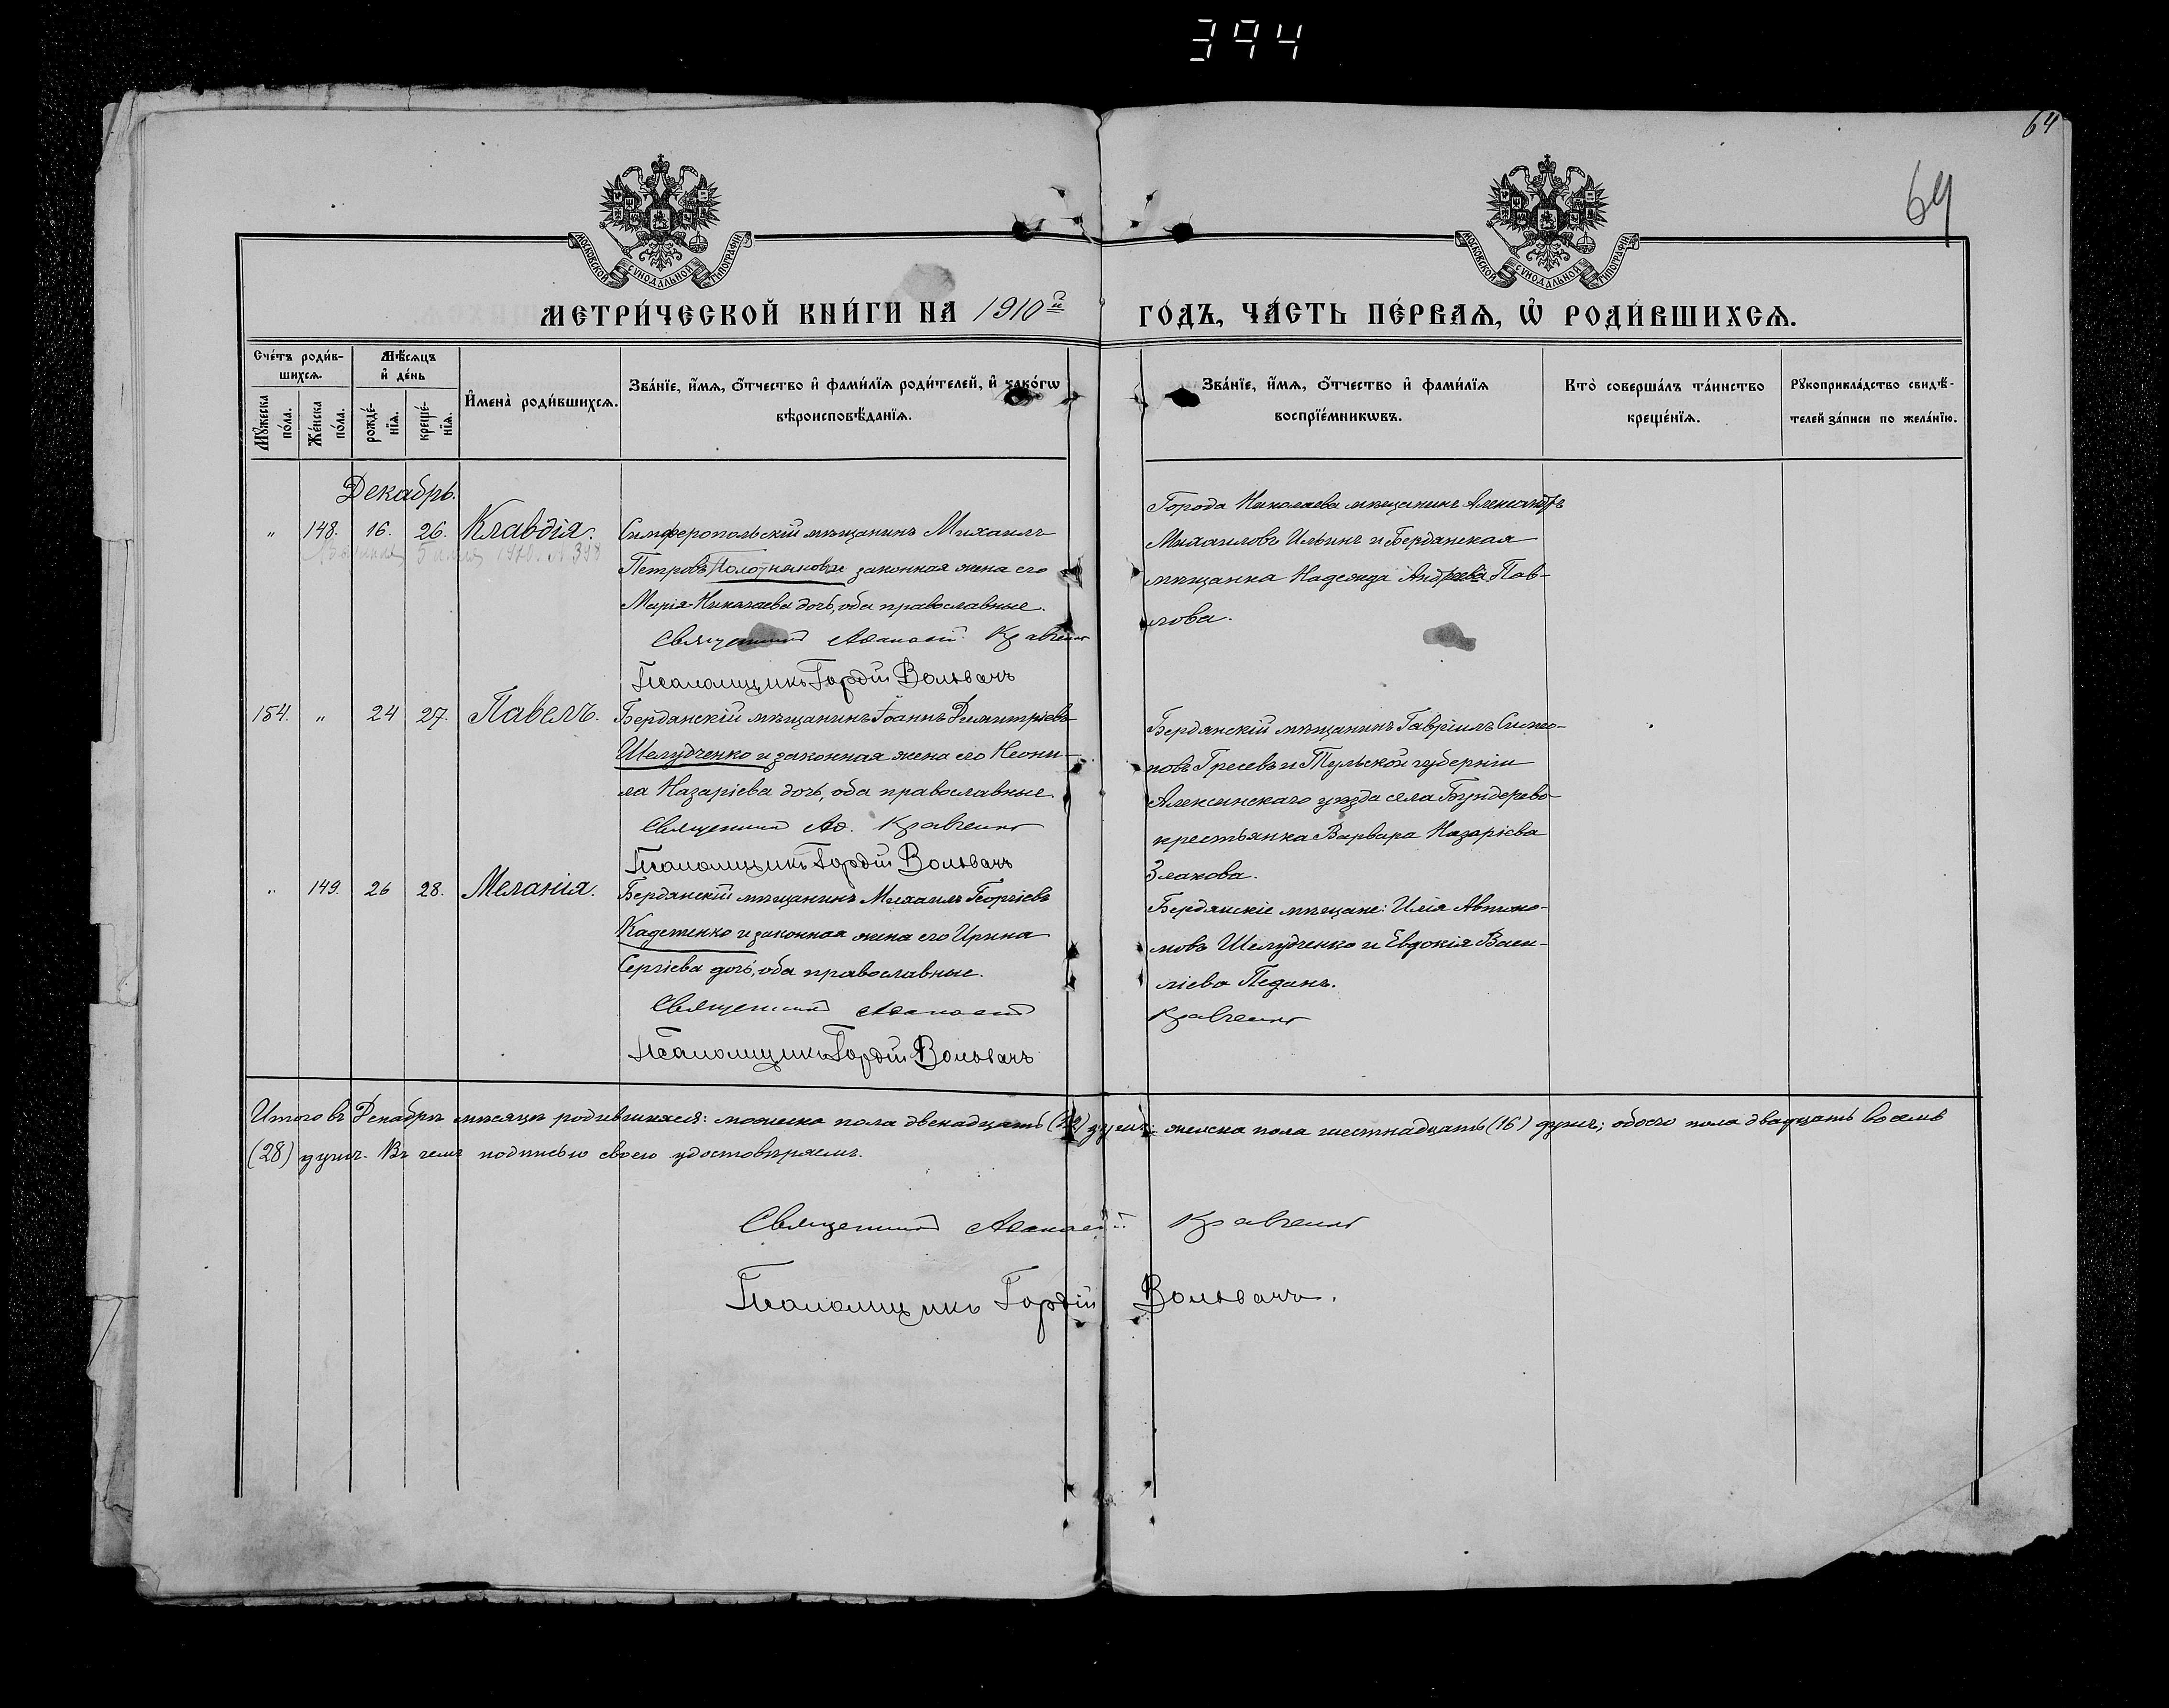 394
64
64
МОСКОВСКОЙ СѴНОДАЛЬНОЙ ТИПОГРАФІИ
МОСКОВСКОЙ СѴНОДАЛЬНОЙ ТИПОГРАФІИ
МЕТРИ́ЧЕСКОЙ КНИ́ГИ НА 1910й
ГО́ДЪ, ЧА́СТЬ ПЕ́РВАѦ, Ѡ҆ РОДИ́ВШИХСѦ.
Сче́тъ роди́в-
шихсѧ.
Мѣ́сѧцъ
и҆ де́нь
Мꙋ́жеска
по́ла.
Же́нска
по́ла.
рожде́-
нїѧ.
креще́-
нїѧ.
И҆мена̀ роди́вшихсѧ.
Зва́нїе, и҆́мѧ, ѻ҆́тчество и҆ фами́лїѧ роди́телей, и҆ како́гѡ
вѣроисповѣ́данїѧ.
Зва́нїе, и҆́мѧ, ѻ҆́тчество и҆ фами́лїѧ
воспрїе́мникѡвъ.
Кто̀ соверша́лъ та́инство
креще́нїѧ.
Рꙋкоприкла́дство свидѣ́-
телей за́писи по жела́нїю.
Декабрь.
" 148. 16. 26. Клавдія.
Симферопольскій мѣщанинъ Михаилъ
Петровъ законная жена его
Марія Николаева дочь, оба православные.
Священникъ Аѳанасій Кравченко
Псаломщикъ Гордій Вольвачъ
Города Николаева мѣщанинъ Александръ
Михаиловъ Ильинъ и Бердянская
мѣщанка Надежда Андреева Пав-
лова.
154. " 24 27. Павелъ.
Бердянскій мѣщанинъ Іоаннъ Димитріевъ
Шелудченко и законная жена его Неони-
ла Назаріева дочь, оба православные
Священникъ Аѳ. Кравченко
Псаломщикъ Гордій Вольвачъ
Бердянскій мѣщанинъ Гавріилъ
и Тульской губерніи
Алексинскаго уѣзда села
крестьянка Варвара Назаріева
Злакова.
" 149. 26 28. Меланія.
Бердянскій мѣщанинъ Михаилъ Георгіевъ
и законная жена его Ирина
Сергіева дочь, оба православные.
Священникъ Аѳанасій
Кравченко
Псаломщикъ Гордій Вольвачъ
Бердянскіе мѣщане: Илія Автоно-
мовъ Шелудченко и Евдокія Васи-
ліева Педанъ.
Итого въ Декабрѣ мѣсяцѣ родившихся: мужеска пола двенадцать (12) душъ; женска пола шестнадцать (16) душъ; обоего пола двадцать восемь
(28) душъ. Въ чемъ подписью своею удостовѣряемъ.
Священникъ Аѳанасій Кравченко
Псаломщикъ Гордій Вольвачъ.